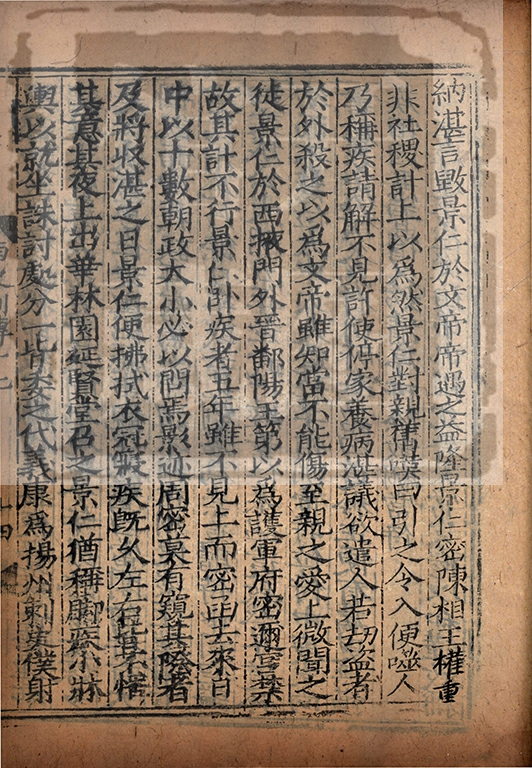 納湛言毀景仁於文帝帝遇之益隆景仁密陳相王權重
非社稷計上以為然景仁對親舊嘆曰引之令入便噬人
乃稱疾請解不見許使停家養病湛議欲遣人若刼盜者
於外殺之以為文帝雖知當不能傷至親之愛上微聞之
徙景仁於西掖門外晉鄱陽王第以為護軍府密邇宮禁
故其計不行景仁卧疾者五年雖不見上而密函去來日
中以十數朝政大小必以問焉影迹周密莫有窺其際者
及將收湛之日景仁便拂拭衣冠寢疾旣久左右皆不悟
其意其夜上出華林園延賢堂召之景仁猶稱脚疾小牀
輿以就坐誅討處分一皆委之代義康為揚州刺史僕射